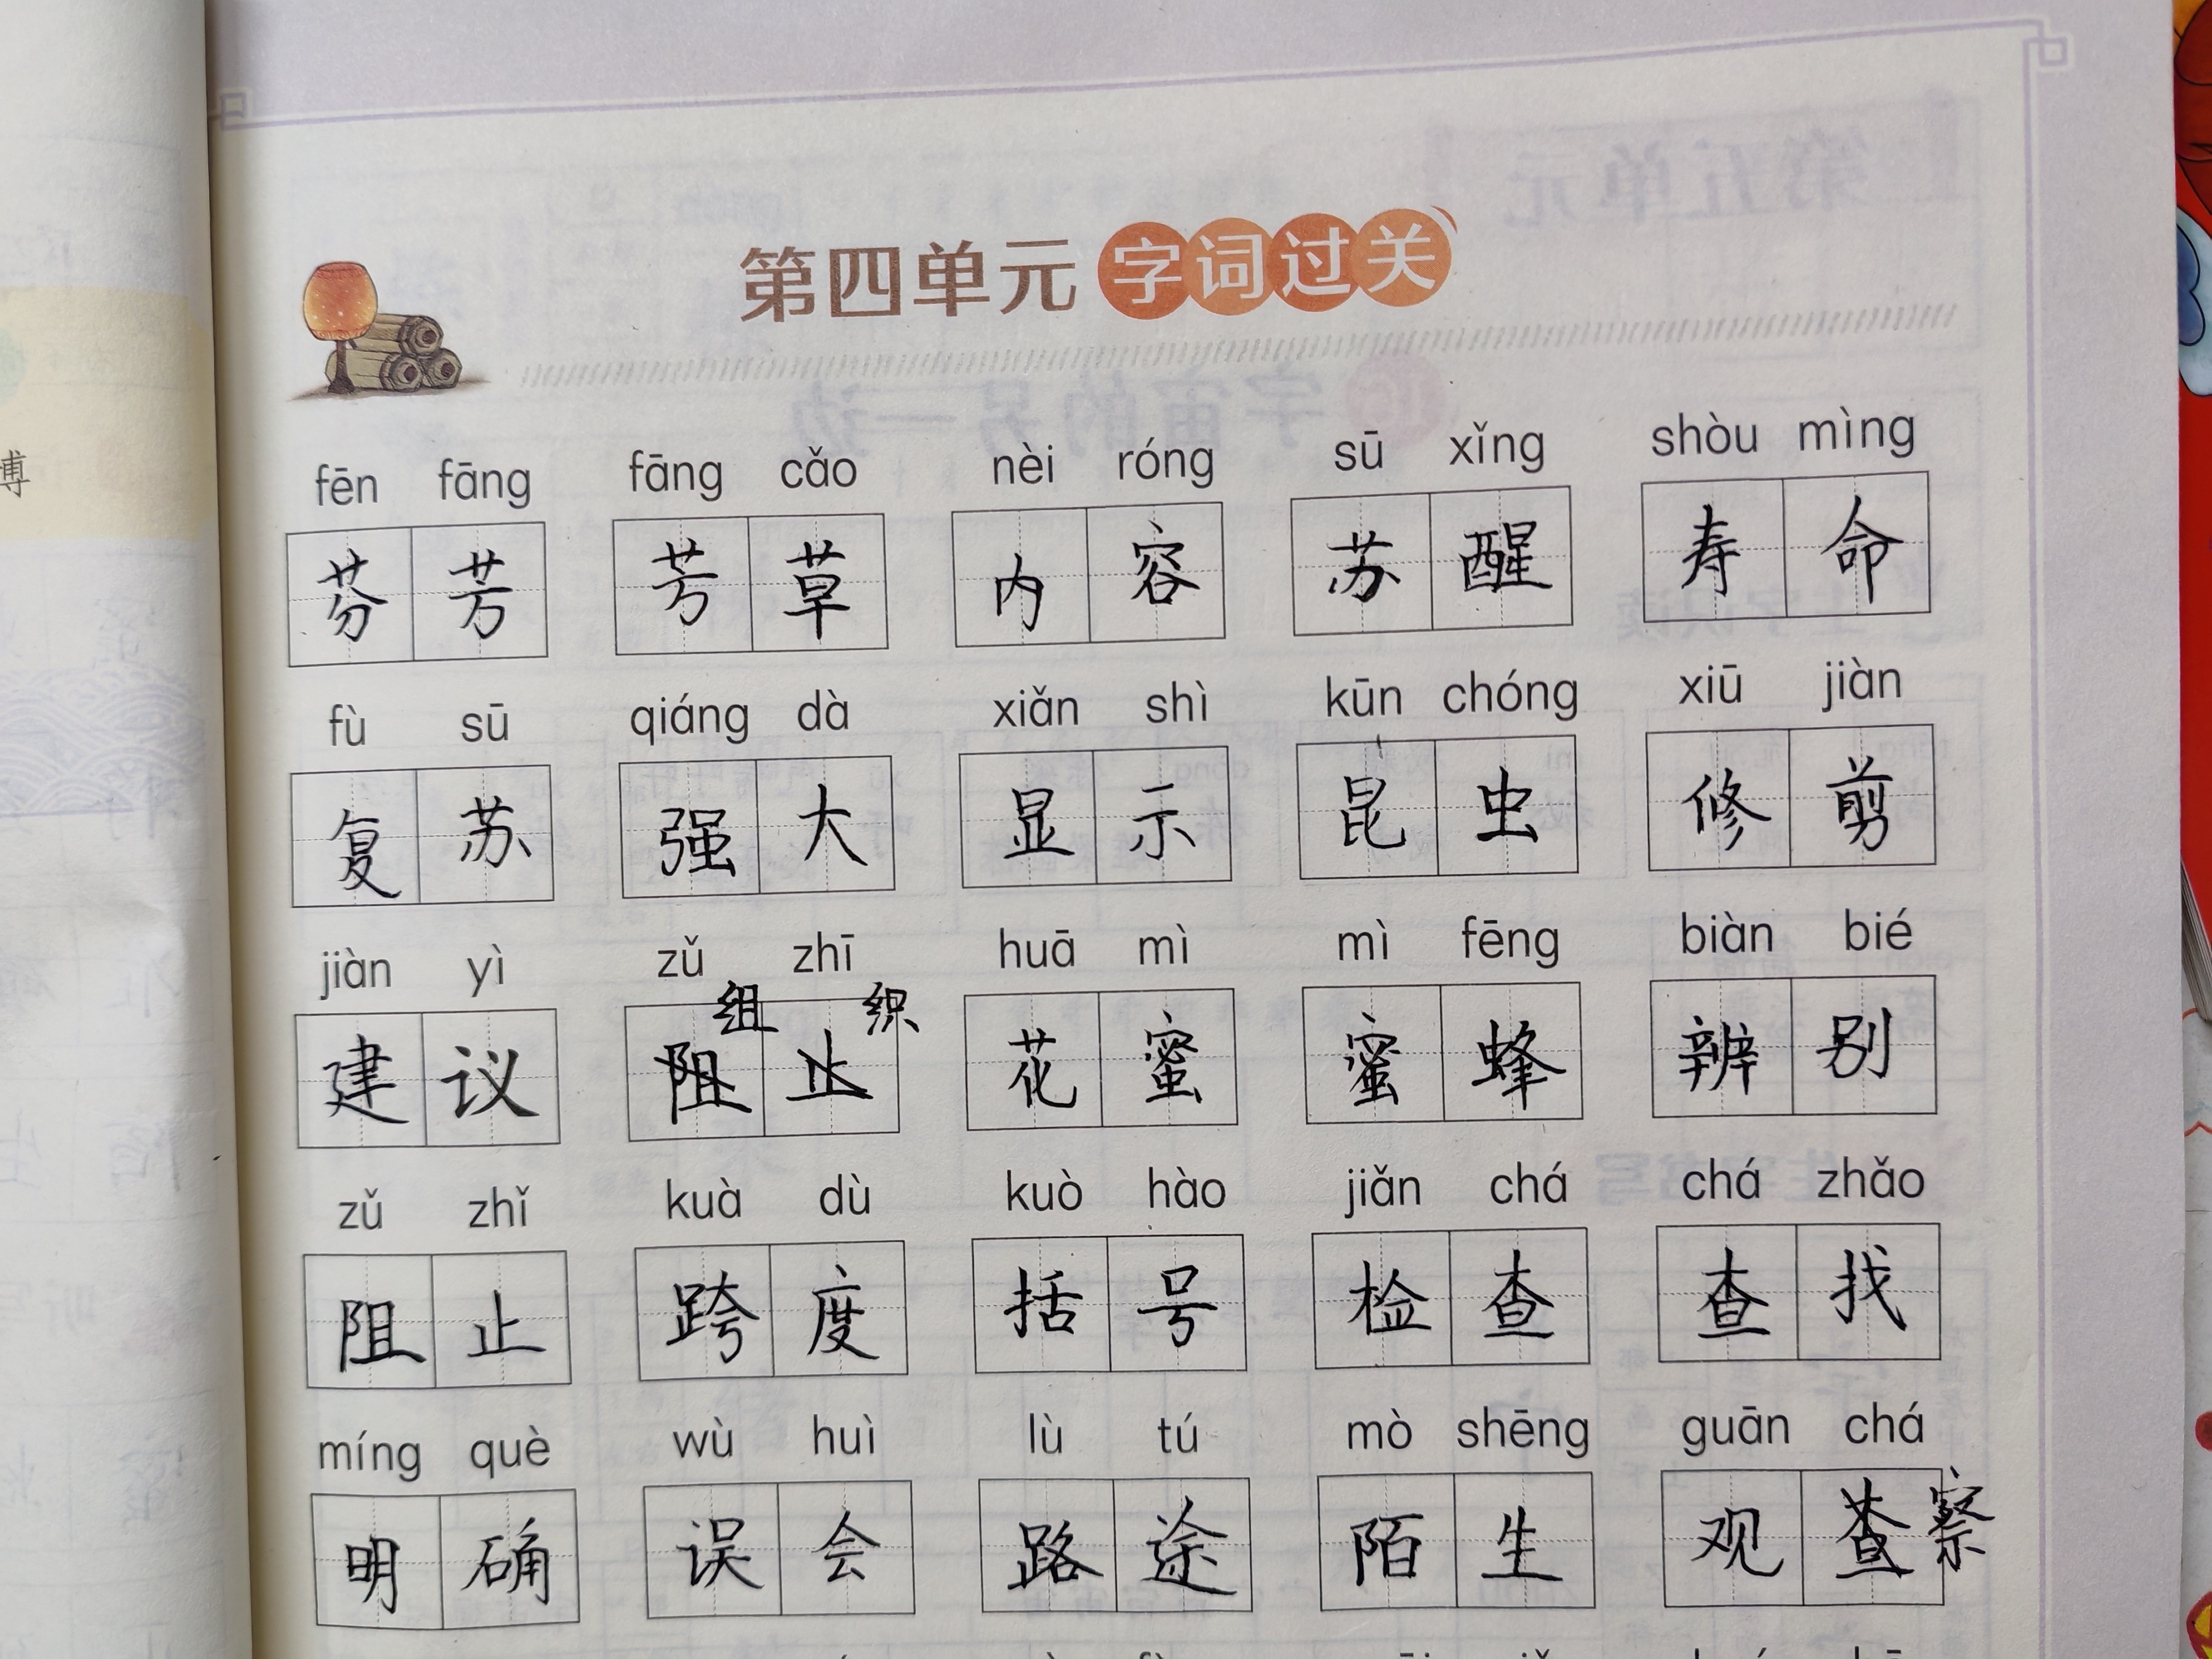 第四单元 字词过关
fēn fāng fāng cǎo nèi róng sū xǐng shòu mìng
芬芳 芳草 内容 苏醒 寿命
fù sū qiáng dà xiǎn shì kūn chóng xiū jiàn
复苏 强大 显示 昆虫 修剪
jiàn yì zǔ zhī huā mì mì fēng biàn bié
组 织
建议 阻止 花蜜 蜜蜂 辨别
zǔ zhǐ kuà dù kuò hào jiǎn chá chá zhǎo
阻止 跨度 括号 检查 查找
míng què wù huì lù tú mò shēng guān chá
明确 误会 路途 陌生 观查 察
博